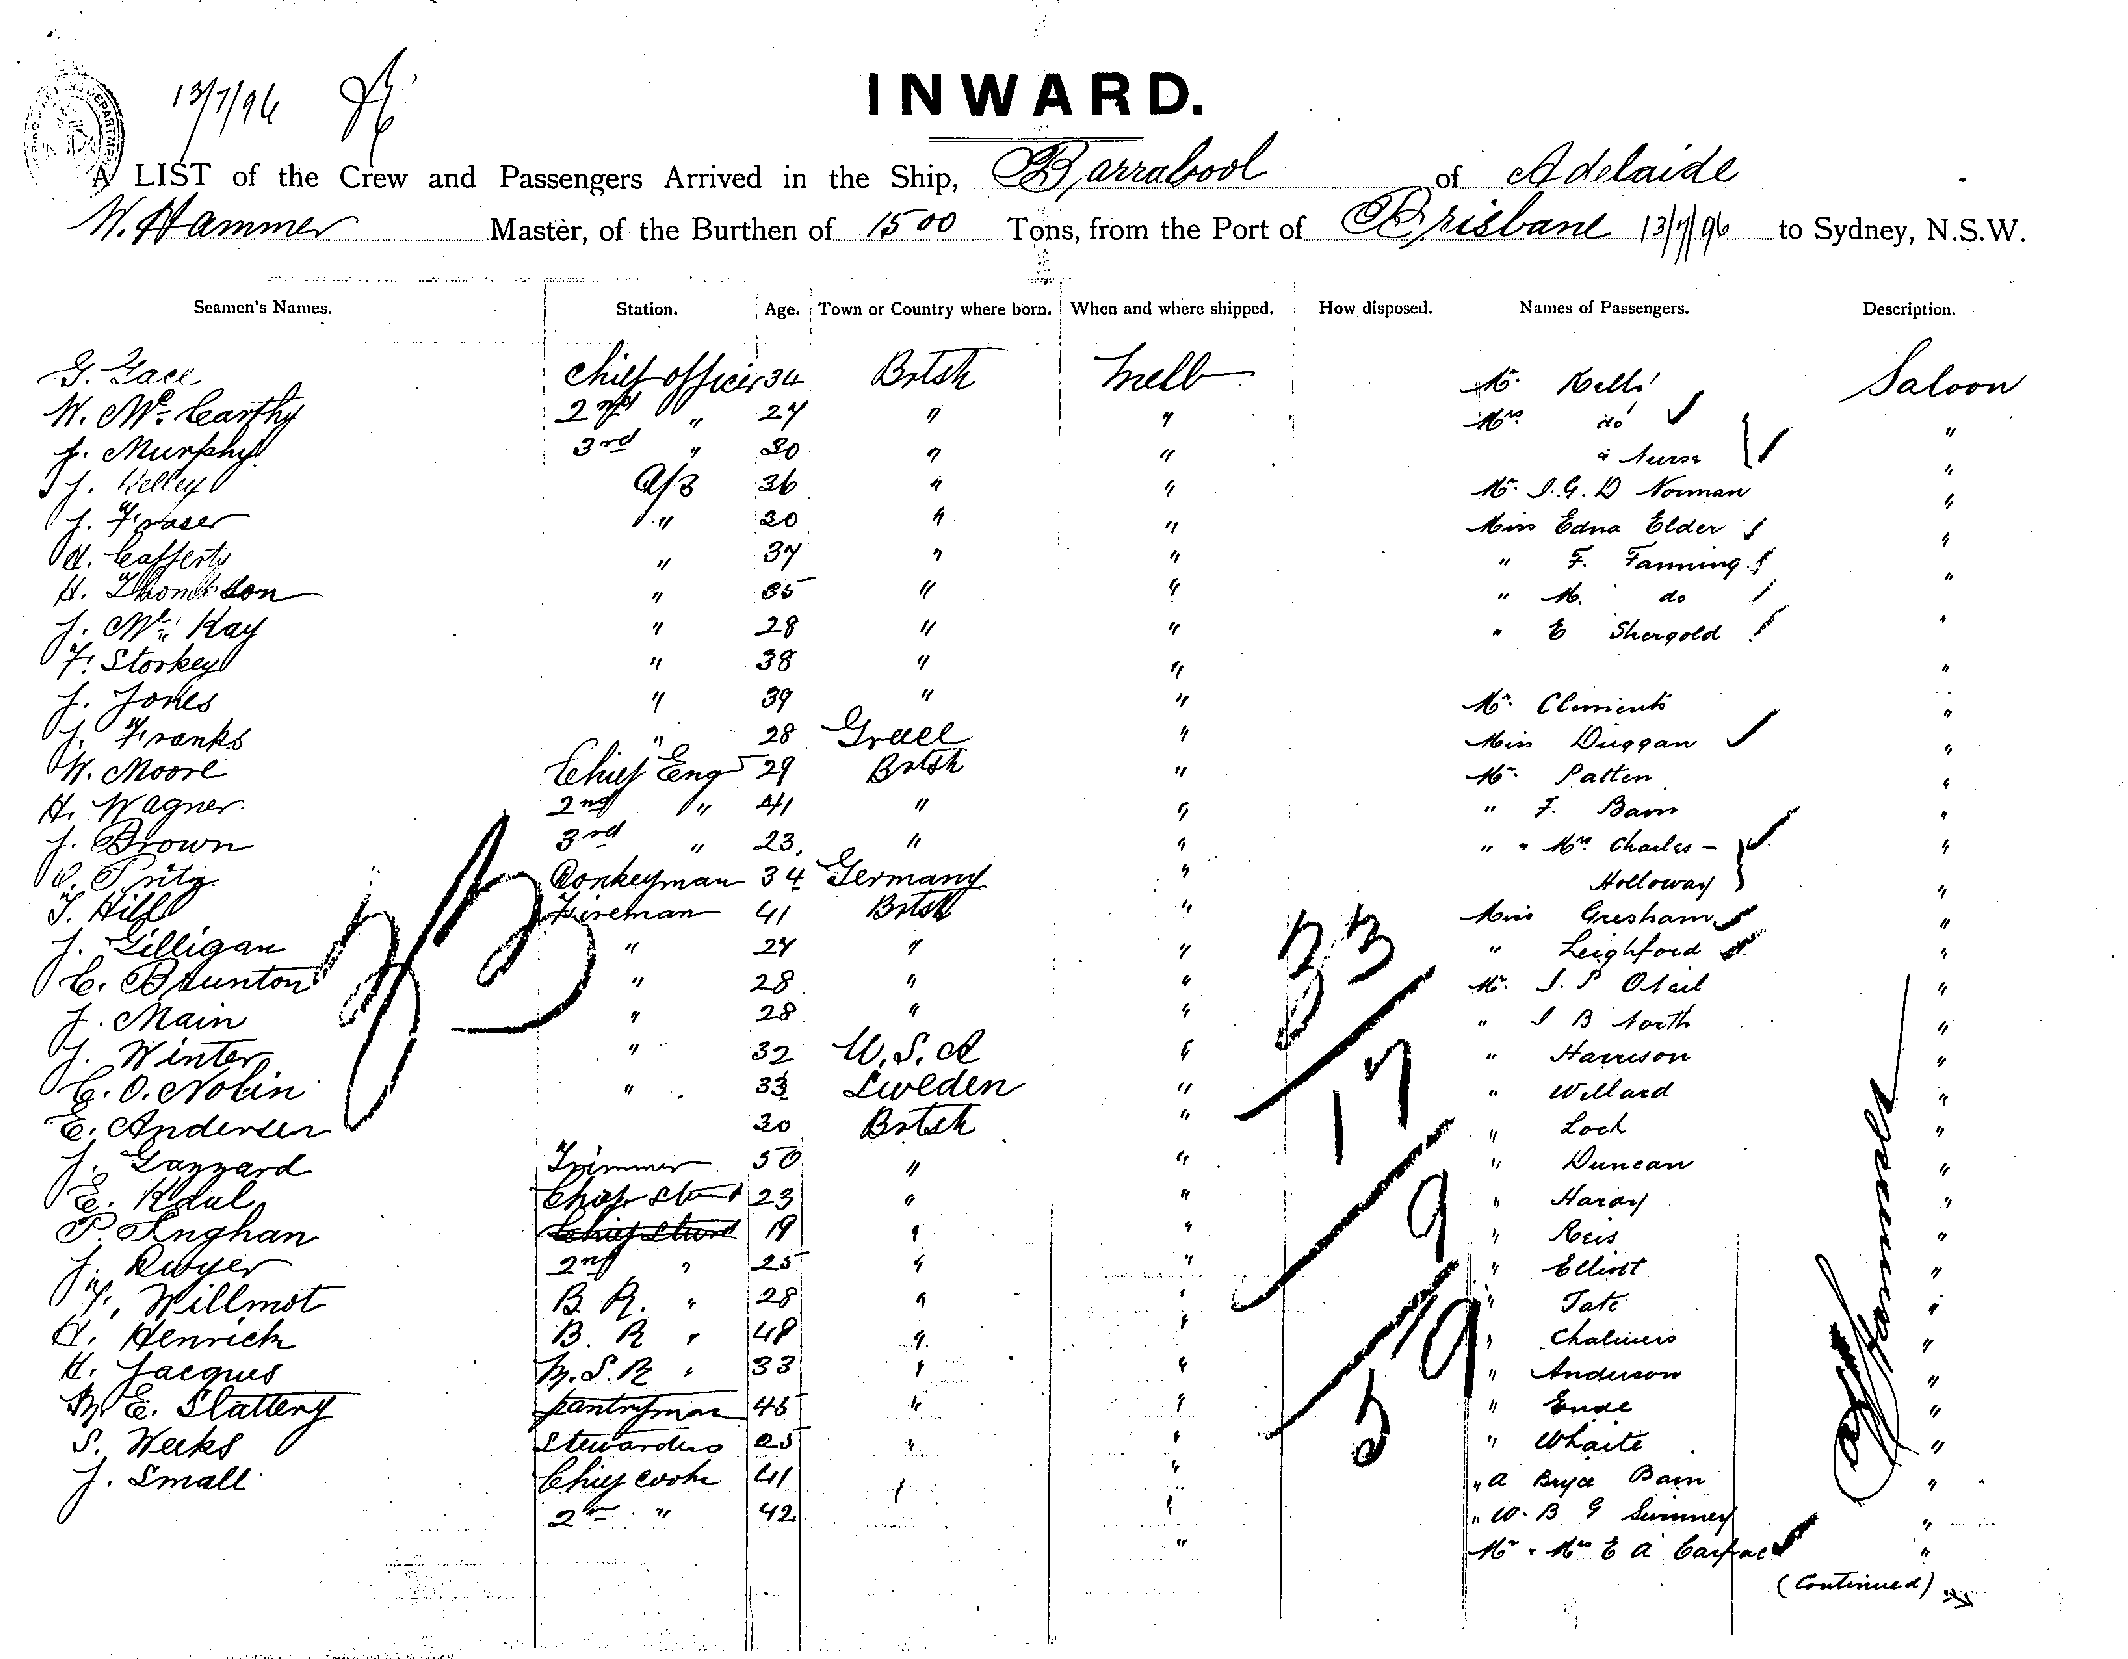 13/7/96
INWARD.
A LIST of the Crew and Passengers Arrived in the Ship, Barrabool of Adelaide
W. Hammer Master, of the Burthen of 1500 Tons, from the Port of Brisbane 13/7/96 to Sydney, N.S.W.
Seamen's Names. Station. Age. Town or Country where born. When and where shipped. How disposed. Names of Passengers. Description.
G. Gace Chief officer 34 Brtsh Melb Mr. Saloon
W. McCarthy 2nd " 27 " " Mrs do "
J. Murphy 3rd " 30 " " " Nurse "
J. Kelley A/B 36 " " Mr. J. G. D Norman "
J. Fraser " 20 " " Miss Edna Elder "
H. Cafferty " 37 " " " F. Fanning "
H. Thomson " " " " M. do "
J. McKay " 28 " " " E Shergold "
F. Storkey " 38 " " "
J. Jones " 39 " " Mr. Clements "
J. Franks " 28 Greece " Miss Duggan "
W. Moore Chief Engr 29 Brtsh " Mr. Patten "
H. Wagner 2nd " 41 " " " F. Bain "
J. Brown 3rd " 23 " " " " Mrs Charles - "
Fritz Donkeyman 34 Germany " Holloway "
T. Hill Fireman 41 Brtsh " Miss Gresham "
J. Gilligan " 27 " " " Leighford "
C. Brunton " 28 " " Mr. J. P ONeil "
J. Main " 28 " " " J B North "
J. Winter " 32 U.S.A " " Harrison "
C. O. Nolin " 33 Sweden " " Willard "
E. Andersen 30 Brtsh " " Loch "
J. Gazzard Trimmer 50 " " " Duncan "
E. Kdal Chief Stwd 23 " " " Hardy "
P. Inghan Chief Stwd 19 " " " Reis "
J. Dwyer 2nd " 25 " " " Elliott "
F. Willmot B. R. " 28 " " " Tate "
H. Henrich B. R " 48 " " " Chalmers "
H. Jacques M.S.R " 33 " " " Anderson "
M E. Slattery pantryman 45 " " " "
S. Weeks Stewardess 25 " " " Whaite "
J. Small Chief cook 41 " " " A Bryce Bain "
2nd " 42 " " " W. B G "
" Mr & Mrs E A "
(Continued)
33
33
17
9
19
5
W Hammer